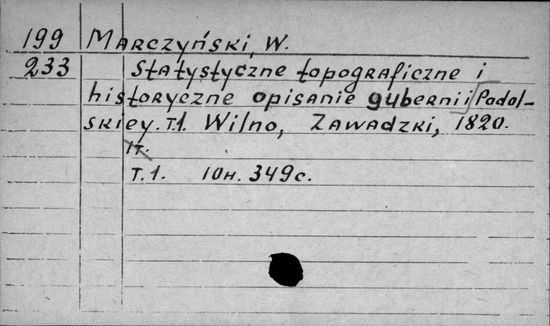 199 MARCZYŃSKI, W.
233 Statystyczne topograficzne i
historyczne opisanie gubernii Podol-
skiey. T.1. Wilno, Zawadzki, 1820.
1т.
T.1. 10н. 349с.